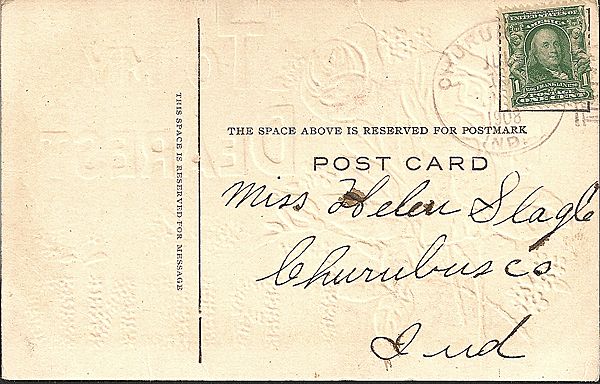 UNITED STATES OF AMERICA
1
1
FRANKLIN
ONE CENT
1908
IND.
THE SPACE ABOVE IS RESERVED FOR POSTMARK
POST CARD
THIS SPACE IS RESERVED FOR MESSAGE
Miss Helen Slagle
Churubusco
Ind